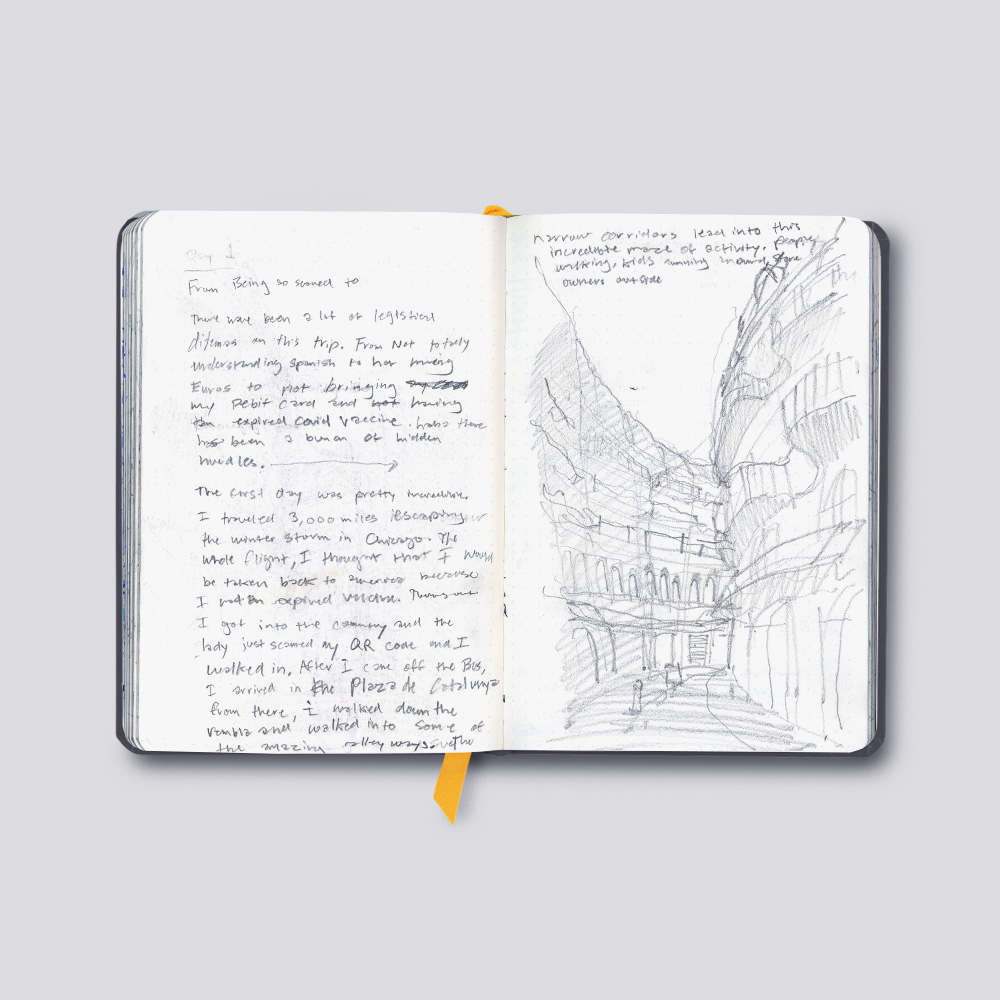 Day 1
From Being so scared to
There have been a lot of legistical
dilemas on this trip. From Not totally
understanding spanish to not having
Euros to not bringing
my Debit card and not having
an expired covid vaccine. there
has been a bunch of hidden
hurdles.
The first day was pretty incredible.
I traveled 3,000 miles escaping
the winter storm in Chicago. The
whole flight, I thought that I would
be taken back to america because
I had an expired vaccine. Turns out
I got into the country and the
lady just scanned my QR code and I
walked in. After I came off the Bus,
I arrived in the Plaza de Catalunya
from there, i walked down the
rambla and walked into some of
the amazing alley ways. The
narrow corridors lead into this
incredible maze of activity. people
walking, kids running around, store
owners outside